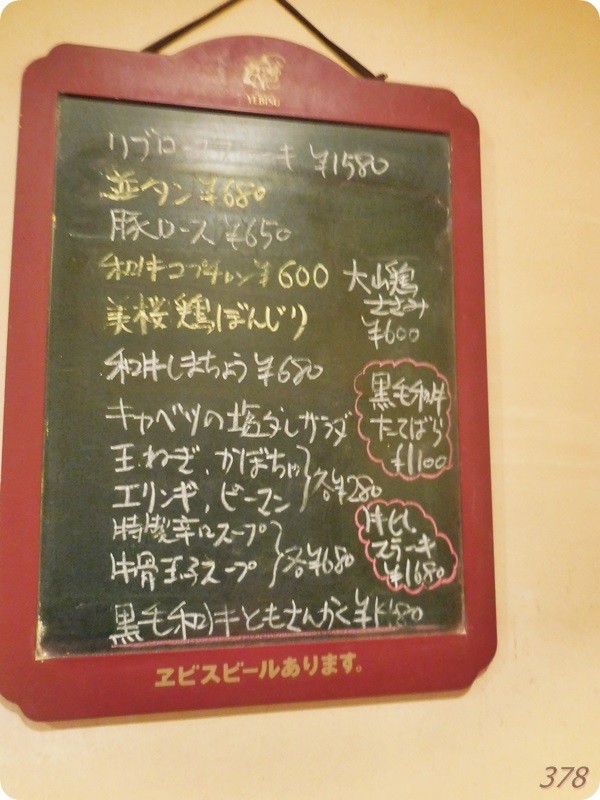 YEBISU
リブロースステーキ ¥1580
並タン ¥680
豚ロース ¥650
和牛コプチャン ¥600
美桜鶏ぼんじり
和牛しまちょう ¥680
キャベツの塩ダレサラダ
玉ねぎ、かぼちゃ
エリンギ、ピーマン
各¥280
特製辛口スープ
牛骨玉子スープ
各¥680
黒毛和牛ともさんかく
大山鶏
ささみ
¥600
黒毛和牛
たてばら
¥1100
ステーキ
¥1680
ヱビスビールあります。
378